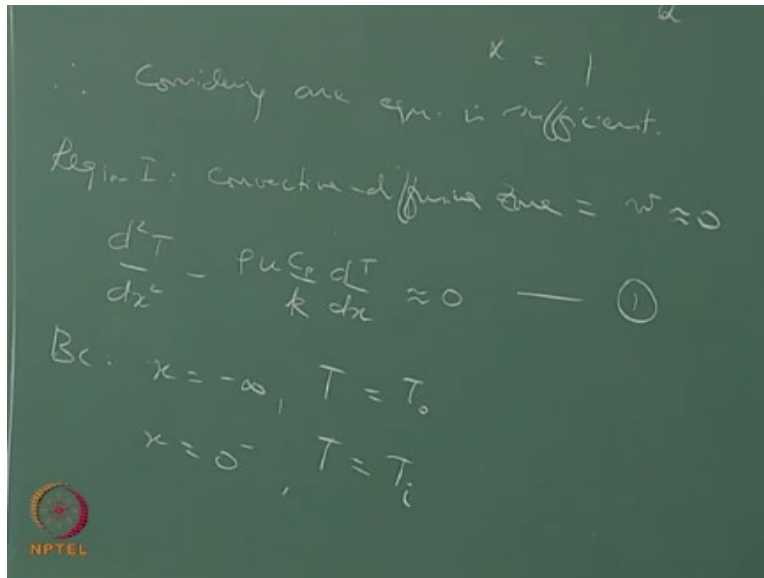 α
x = 1
∴ Considering one eqn. is sufficient.
Region I: Convective-diffusive zone = w ≈ 0
d²T/dx² - ρuCp/k dT/dx ≈ 0 — ①
BC: x = -∞, T = T₀
x = 0⁻, T = Tᵢ
NPTEL